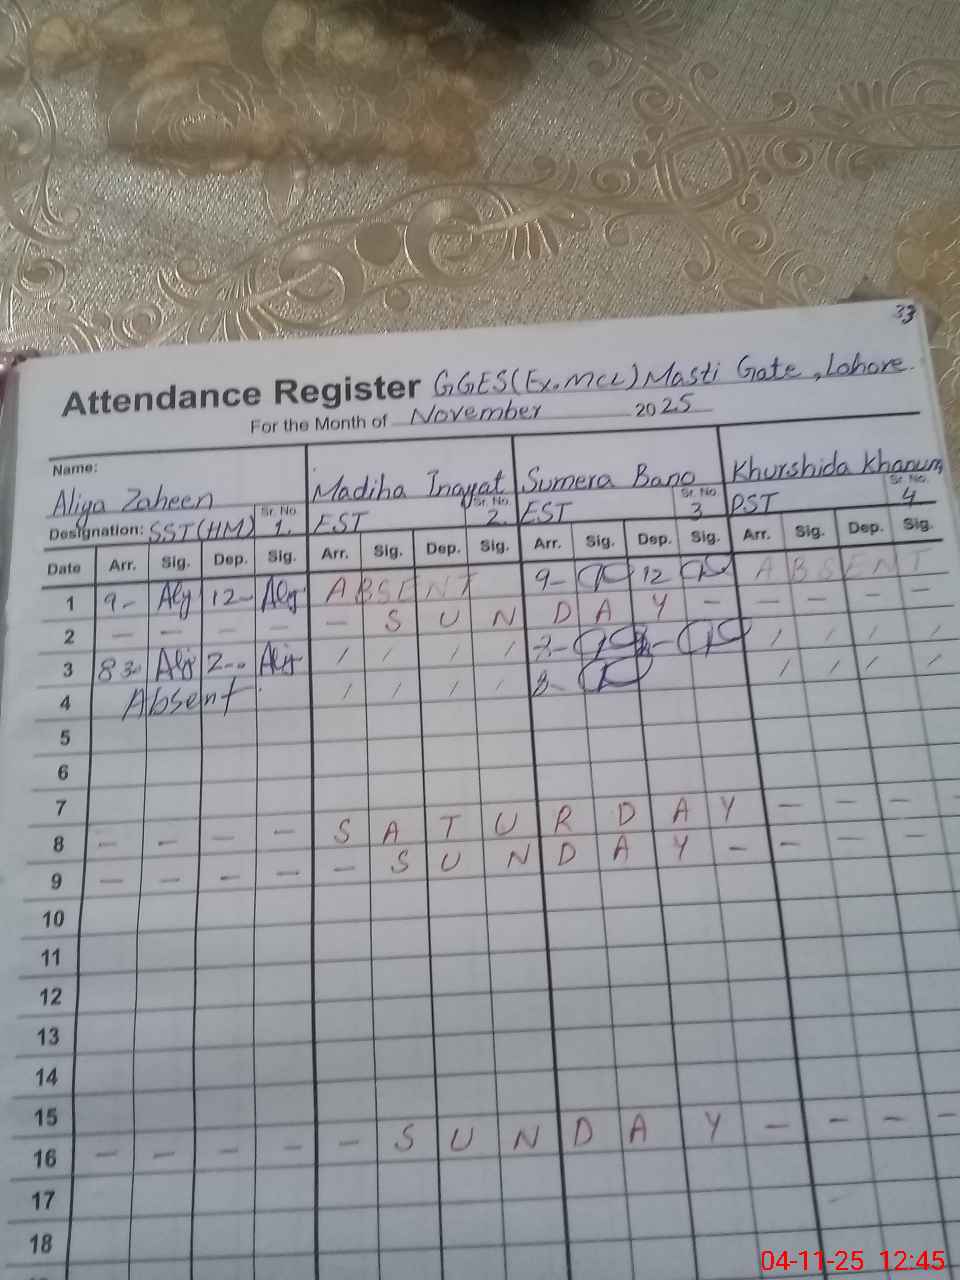 33
Attendance Register GGES(Ex.MCL) Masti Gate, Lahore.
For the Month of November 2025
Name:
Aliya Zaheen Madiha Inayat Sumera Bano Khurshida Khanum
Designation: SST(HM) Sr. No. 1. EST Sr. No. 2. EST Sr. No 3 PST Sr. No. 4
Date Arr. Sig. Dep. Sig. Arr. Sig. Dep. Sig. Arr. Sig. Dep. Sig. Arr. Sig. Dep. Sig.
1 9- Aly 12- Aly ABSENT 9- 12 ABSENT
2 — — — — — SUNDAY — — — — —
3 830 Aly 2-- Aly / / / / / / / /
4 Absent / / / / 8- / / / /
5
6
7
8 — — — — SATURDAY — — — —
9 — — — — — SUNDAY — — — —
10
11
12
13
14
15
16 — — — — — SUNDAY — — — —
17
18
04-11-25 12:45